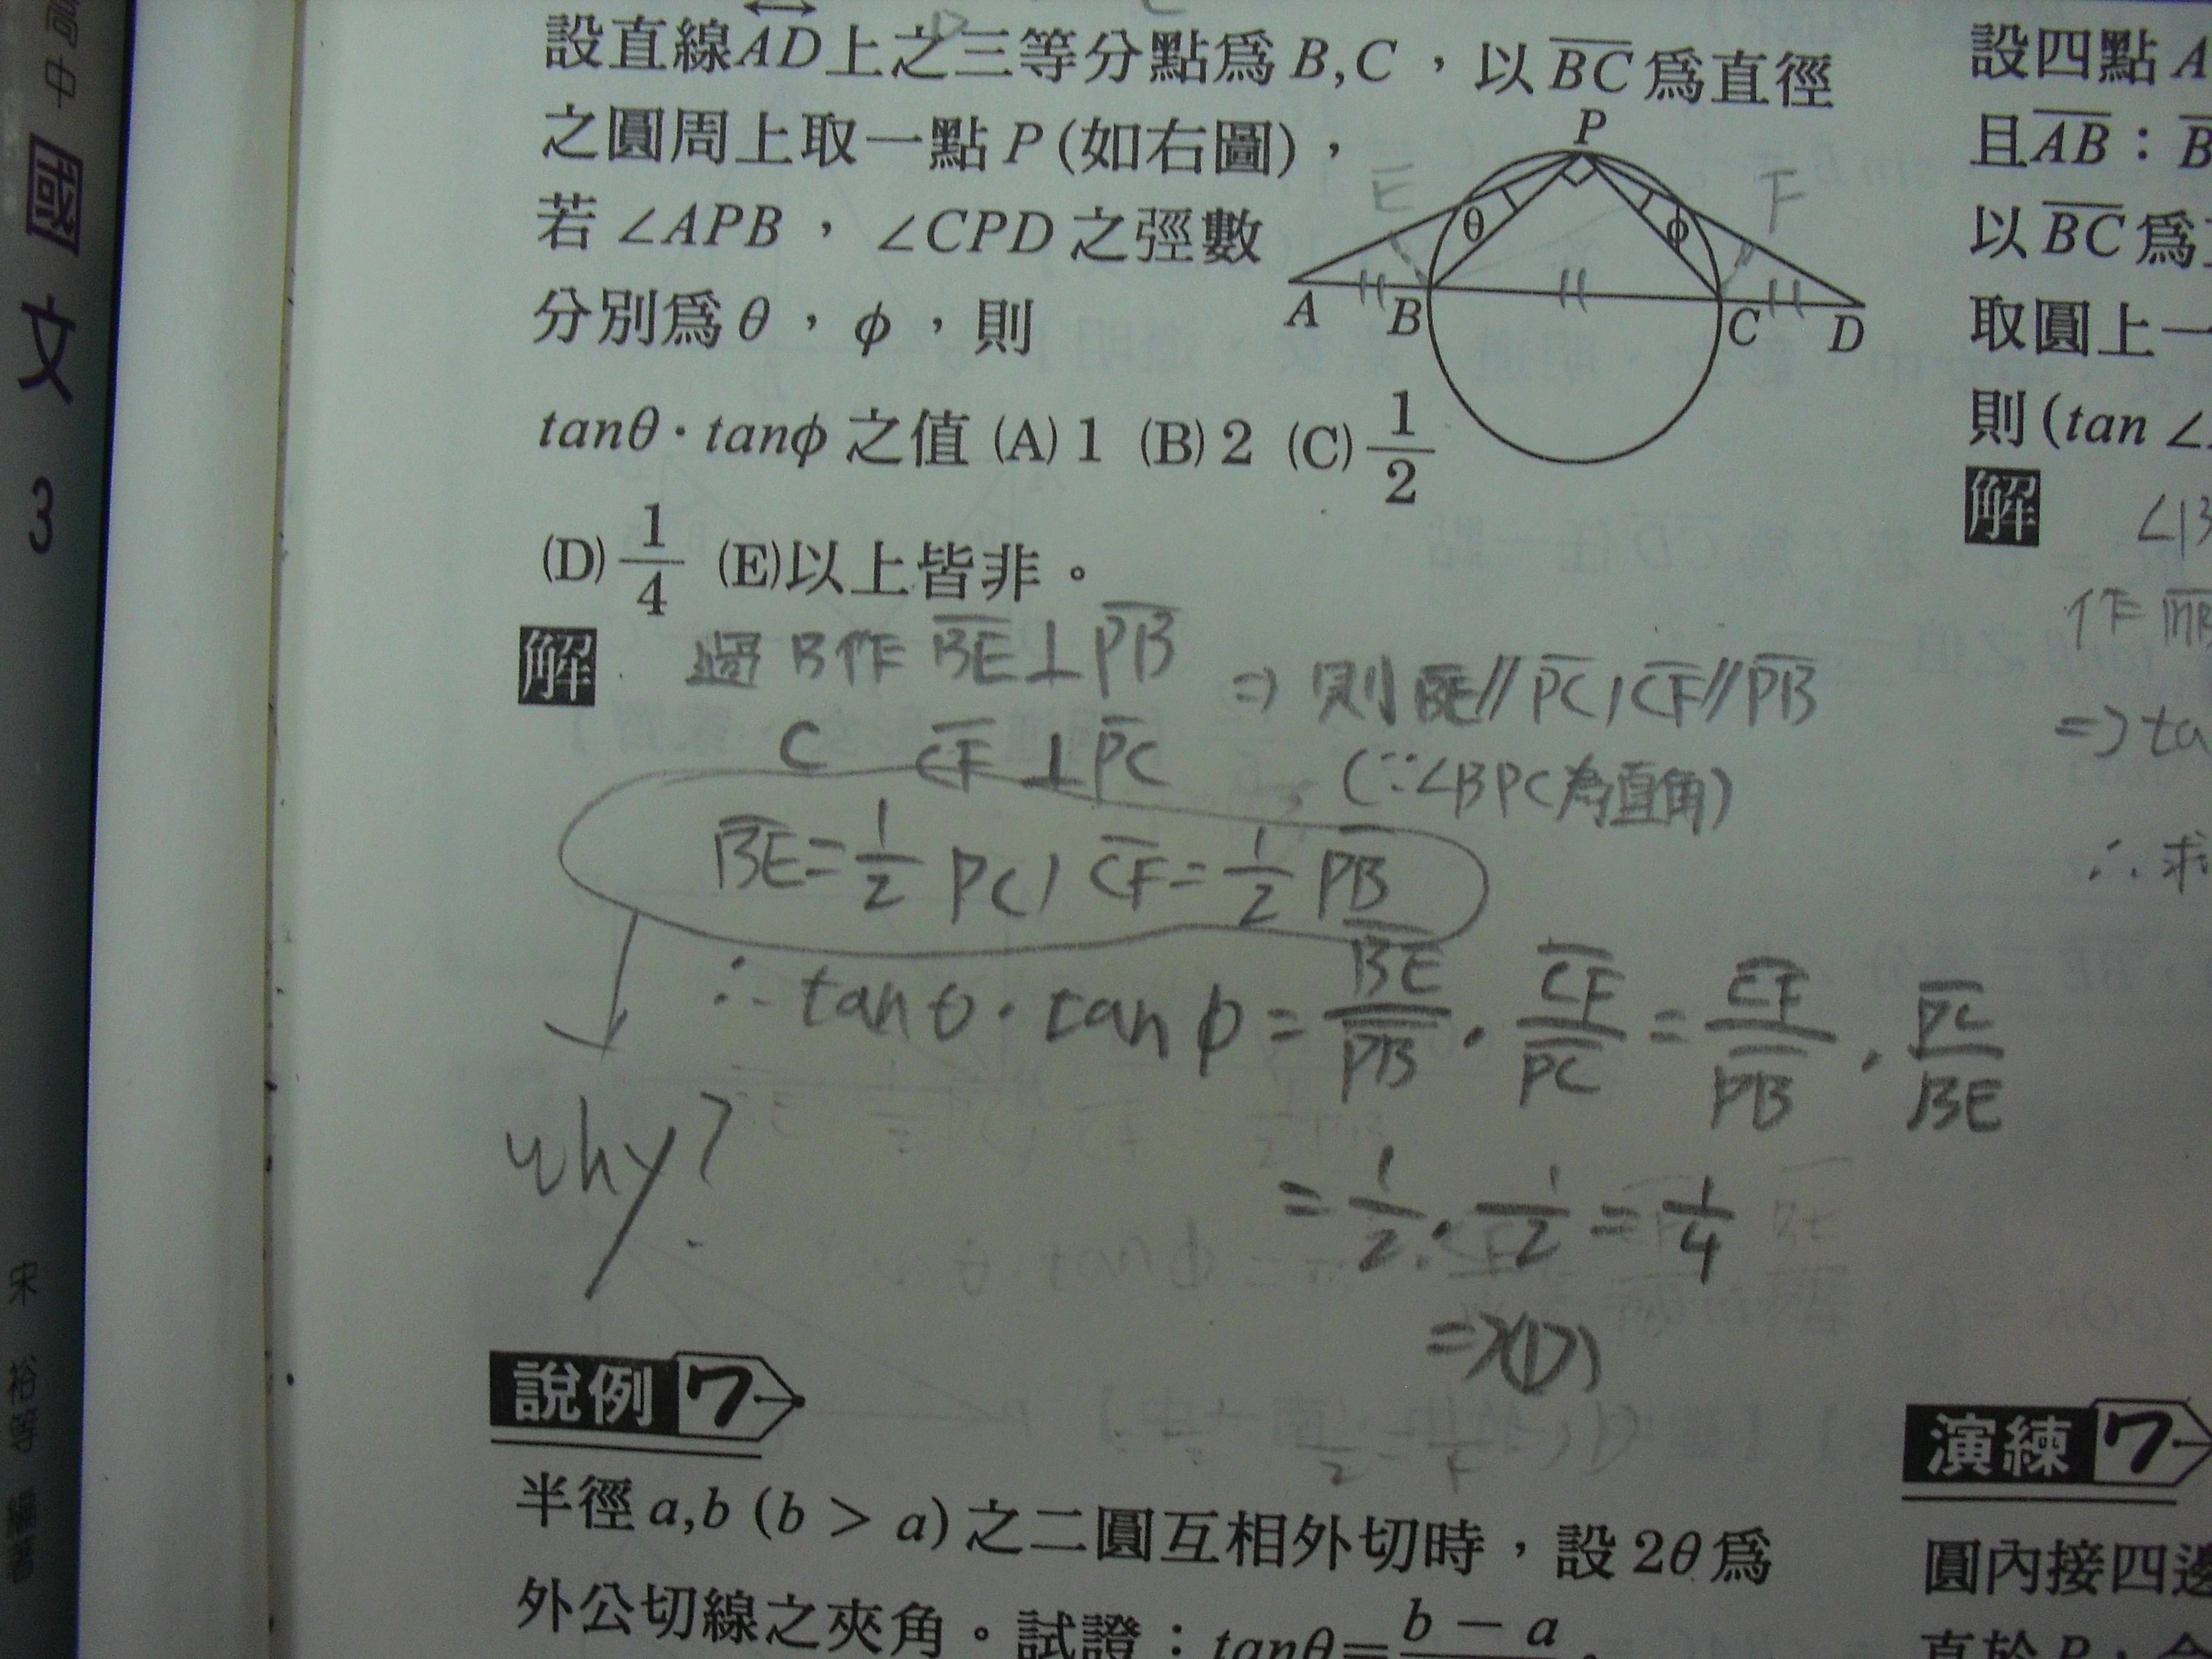 高中國文3
宋裕等 編著
設直線AD上之三等分點爲B,C,以BC爲直徑
之圓周上取一點P(如右圖),
若∠APB,∠CPD之弳數
分別爲θ,ϕ,則
tanθ·tanϕ之值 (A) 1 (B) 2 (C) 1/2
(D) 1/4 (E)以上皆非。
P
E
F
θ
ϕ
A
B
C
D
解 過B作BE⊥PB
C CF⊥PC
⇒ 則BE//PC, CF//PB
(∵∠BPC為直角)
BE=1/2 PC, CF=1/2 PB
why?
∴ tanθ·tanϕ = BE/PB · CF/PC = CF/PB · PC/BE
= 1/2 · 1/2 = 1/4
⇒(D)
說例 7
半徑a,b (b > a)之二圓互相外切時,設2θ爲
外公切線之夾角。試證:tanθ= b − a
設四點A
且AB:B
以BC爲
取圓上一
則(tan ∠
解 ∠B
作
⇒ta
∴ 求
演練 7
圓內接四邊
直於P,